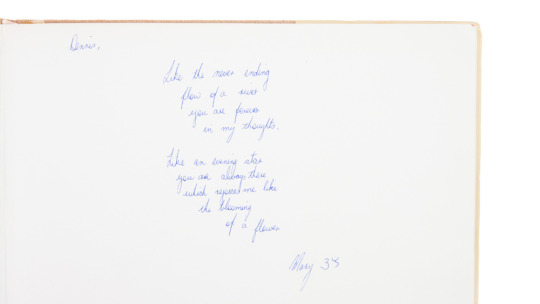 Dennis,
Like the never ending
flow of a river
you are forever
in my thoughts.
Like an evening star
you are always there
which me like
the blooming
of a flower
Mary